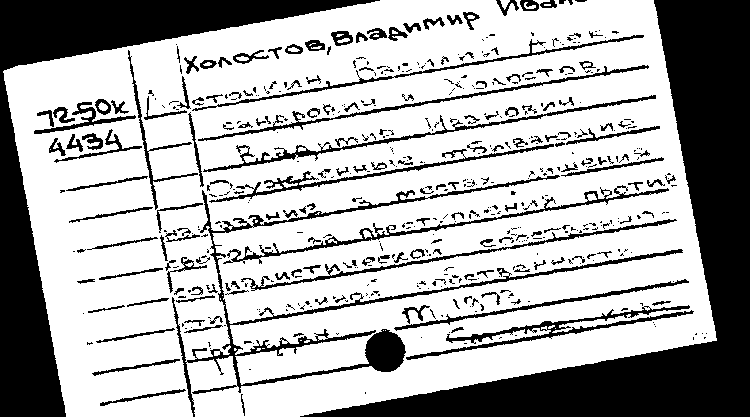 Холостов, Владимир Ивано
72-50к
4434
Ласточкин, Василий Алек-
сандрович и Холостов,
Владимир Иванович.
Осужденные, отбывающие
наказание в местах лишения
свободы за преступления против
социалистической собственно-
сти и личной собственности
граждан. М., 1973.
См. след. карт.